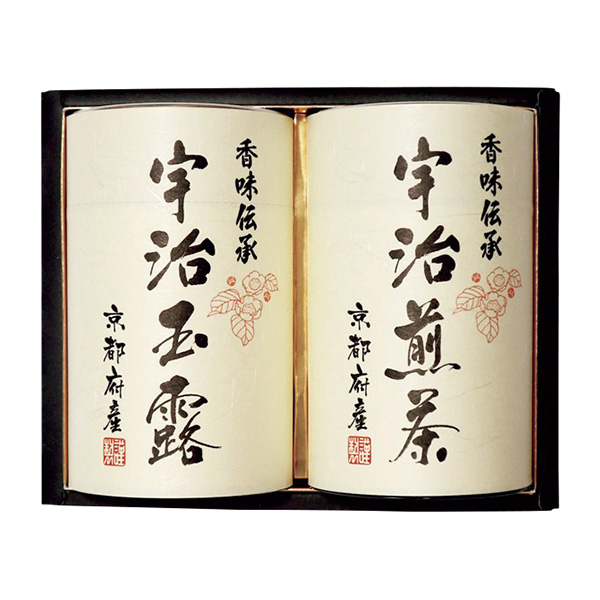 香味伝承
宇治煎茶
京都府産
謹製
香味伝承
宇治玉露
京都府産
謹製